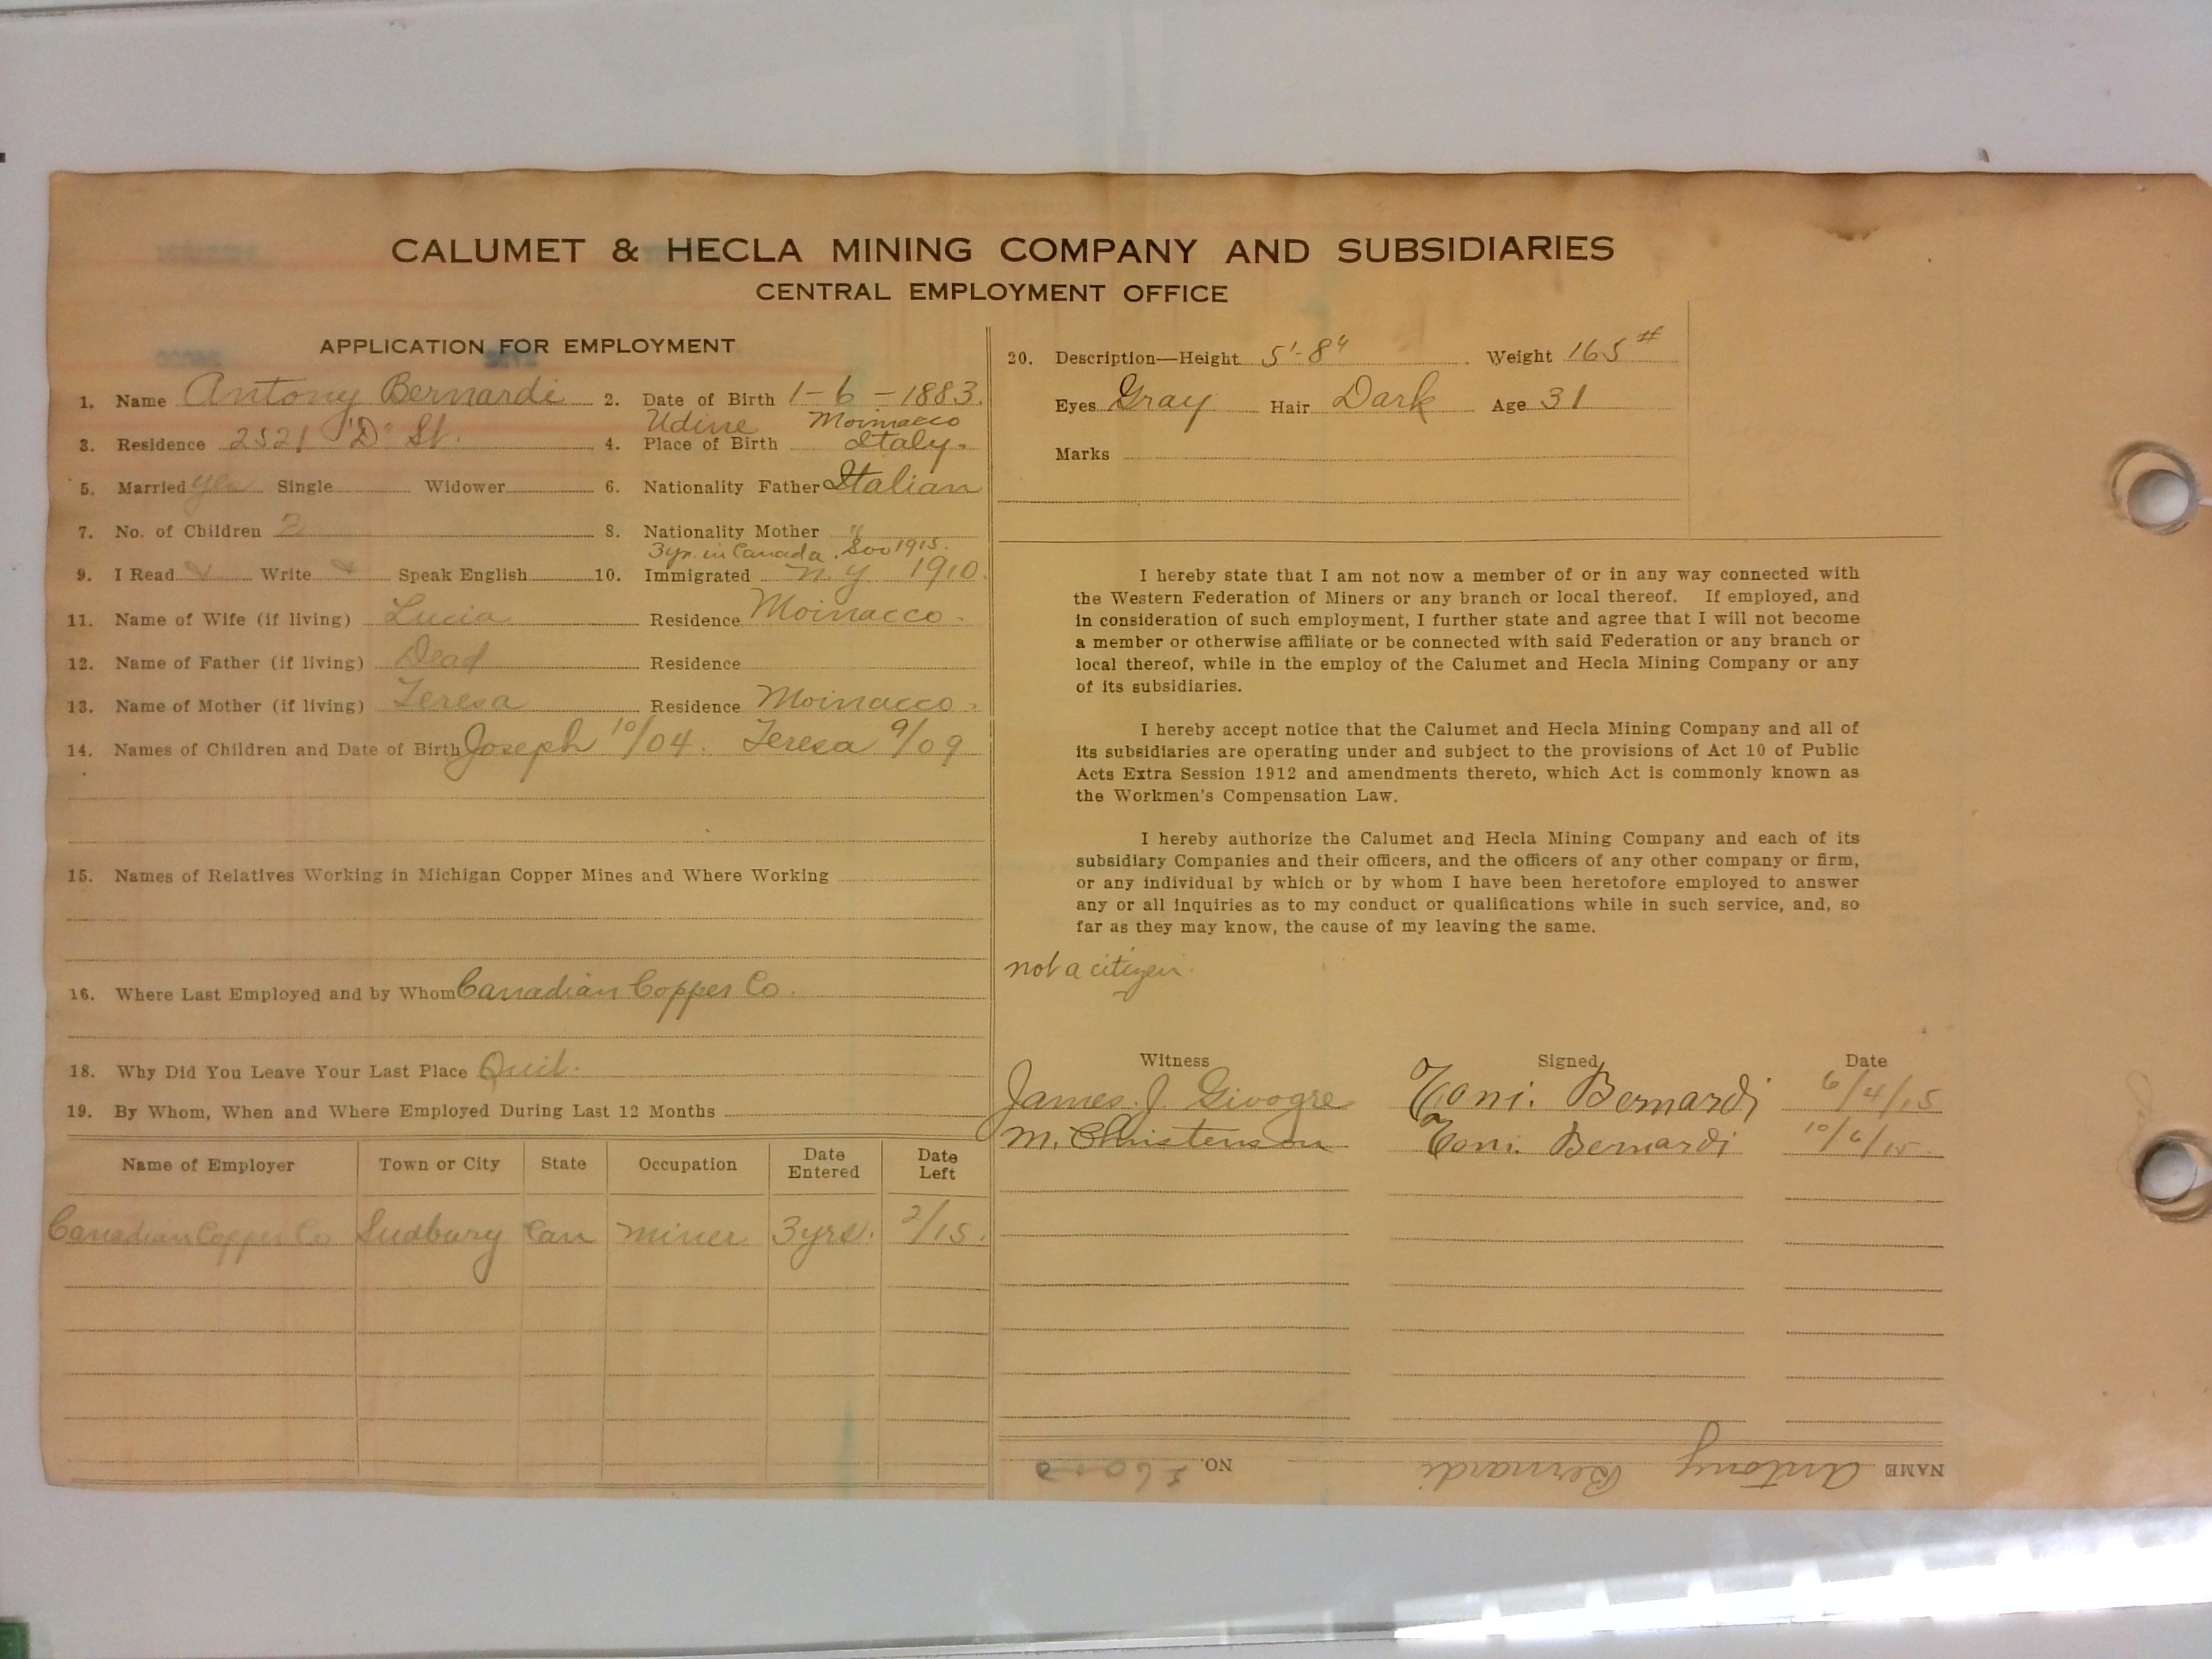 CALUMET & HECLA MINING COMPANY AND SUBSIDIARIES
CENTRAL EMPLOYMENT OFFICE
APPLICATION FOR EMPLOYMENT
1. Name Antony Bernardi 2. Date of Birth 1-6-1883.
Udine Moimacco
3. Residence 2521 "D" St. 4. Place of Birth Italy.
5. Married yes Single Widower 6. Nationality Father Italian
7. No. of Children 2 8. Nationality Mother "
3 yr. in Canada. Soo 1915.
9. I Read Write Speak English 10. Immigrated N.Y 1910.
11. Name of Wife (if living) Lucia Residence Moimacco.
12. Name of Father (if living) Dead Residence
13. Name of Mother (if living) Teresa Residence Moimacco.
14. Names of Children and Date of Birth Joseph 10/04. Teresa 9/09
15. Names of Relatives Working in Michigan Copper Mines and Where Working
16. Where Last Employed and by Whom Canadian Copper Co.
18. Why Did You Leave Your Last Place Quit.
19. By Whom, When and Where Employed During Last 12 Months
Name of Employer Town or City State Occupation Date Entered Date Left
Canadian Copper Co Sudbury Can Miner 3yrs. 2/15.
20. Description—Height 5'-8" Weight 165#
Eyes Gray Hair Dark Age 31
Marks
I hereby state that I am not now a member of or in any way connected with
the Western Federation of Miners or any branch or local thereof. If employed, and
in consideration of such employment, I further state and agree that I will not become
a member or otherwise affiliate or be connected with said Federation or any branch or
local thereof, while in the employ of the Calumet and Hecla Mining Company or any
of its subsidiaries.
I hereby accept notice that the Calumet and Hecla Mining Company and all of
its subsidiaries are operating under and subject to the provisions of Act 10 of Public
Acts Extra Session 1912 and amendments thereto, which Act is commonly known as
the Workmen's Compensation Law.
I hereby authorize the Calumet and Hecla Mining Company and each of its
subsidiary Companies and their officers, and the officers of any other company or firm,
or any individual by which or by whom I have been heretofore employed to answer
any or all inquiries as to my conduct or qualifications while in such service, and, so
far as they may know, the cause of my leaving the same.
not a citizen.
Witness Signed Date
James J. Givogre Toni. Bernardi 6/4/15
M. Christenson Toni. Bernardi 10/6/15.
NAME Antony Bernardi NO.